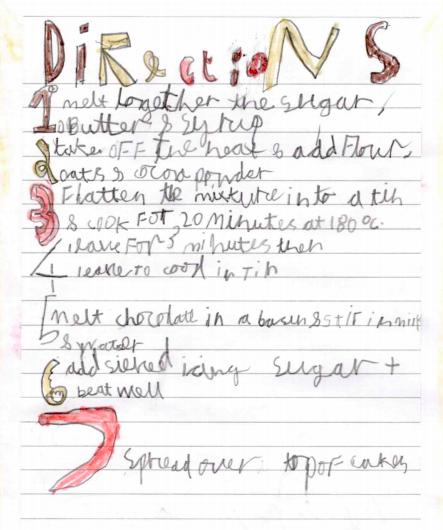 DiRectioNS
1 melt together the sugar,
Butter & Syrup
2 take OFF the heat & add Flour,
oats & cocoa powder
3 Flatten the mixture into a tin
& cook FOT, 20 Minutes at 180°c.
4 leave For 5 minutes then
leave to cool in Tin
5 melt chocolate in a basin & stir in milk
& water
6 add sieked icing sugar +
beat well
7 Spread over top OF cakes